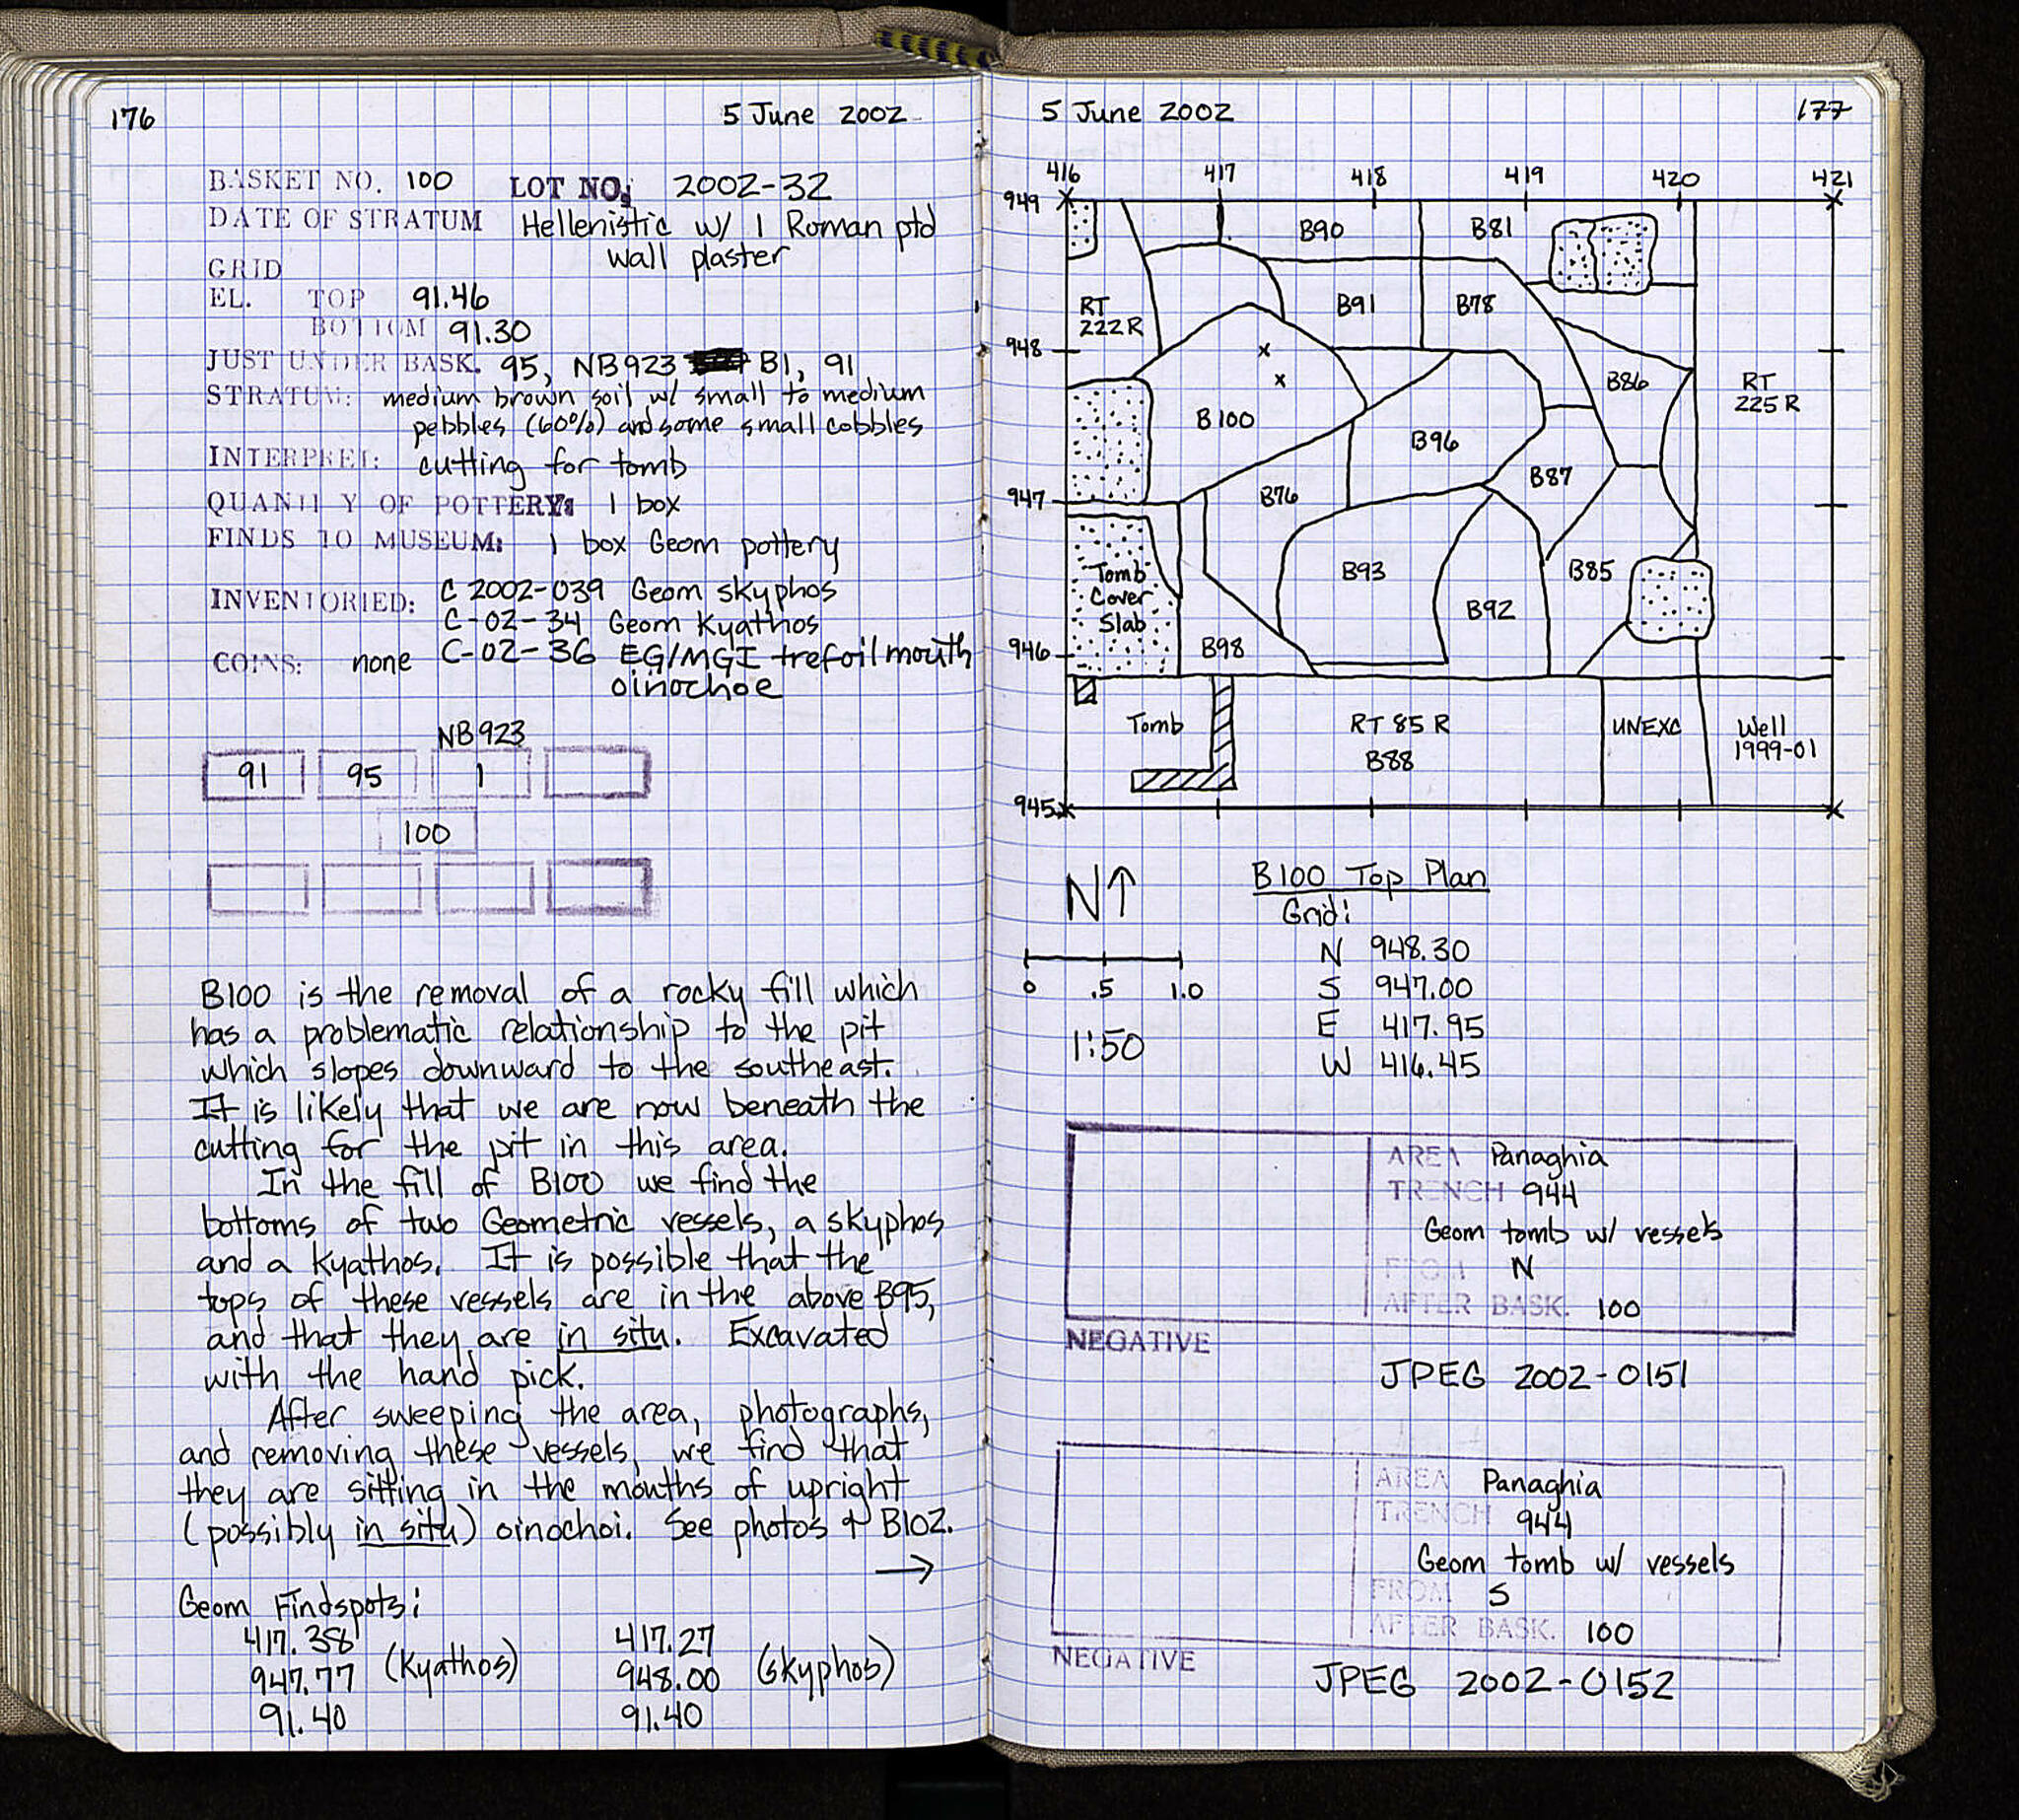 176
5 June 2002
BASKET NO. 100 LOT NO: 2002-32
DATE OF STRATUM Hellenistic w/ 1 Roman ptd
wall plaster
GRID
EL. TOP 91.46
BOTTOM 91.30
JUST UNDER BASK. 95, NB923 B1, 91
STRATUM: medium brown soil w/ small to medium
pebbles (60%) and some small cobbles
INTERPRET: cutting for tomb
QUANTITY OF POTTERY: 1 box
FINDS TO MUSEUM: 1 box Geom pottery
INVENTORIED: C 2002-039 Geom skyphos
C-02-34 Geom Kyathos
COINS: none C-02-36 EG/MGI trefoil mouth
oinochoe
NB923
91 95 1
100
B100 is the removal of a rocky fill which
has a problematic relationship to the pit
which slopes downward to the southeast.
It is likely that we are now beneath the
cutting for the pit in this area.
In the fill of B100 we find the
bottoms of two Geometric vessels, a skyphos
and a Kyathos. It is possible that the
tops of these vessels are in the above B95,
and that they are in situ. Excavated
with the hand pick.
After sweeping the area, photographs,
and removing these vessels, we find that
they are sitting in the mouths of upright
(possibly in situ) oinochoi. See photos & B102.
→
Geom Findspots:
417.38 417.27
947.77 (Kyathos) 948.00 (skyphos)
91.40 91.40
5 June 2002
177
416 417 418 419 420 421
949
B90 B81
RT
222 R
B91 B78
948
B86
RT
225 R
B100
B96
B87
947
B76
Tomb
Cover
Slab
B93
B85
B92
946
B98
Tomb
RT 85 R
B88
UNEXC
Well
1999-01
945
N↑
B100 Top Plan
Grid:
N 948.30
S 947.00
E 417.95
W 416.45
0 .5 1.0
1:50
AREA Panaghia
TRENCH 944
Geom tomb w/ vessels
FROM N
AFTER BASK. 100
NEGATIVE
JPEG 2002-0151
AREA Panaghia
TRENCH 944
Geom tomb w/ vessels
FROM S
AFTER BASK. 100
NEGATIVE
JPEG 2002-0152